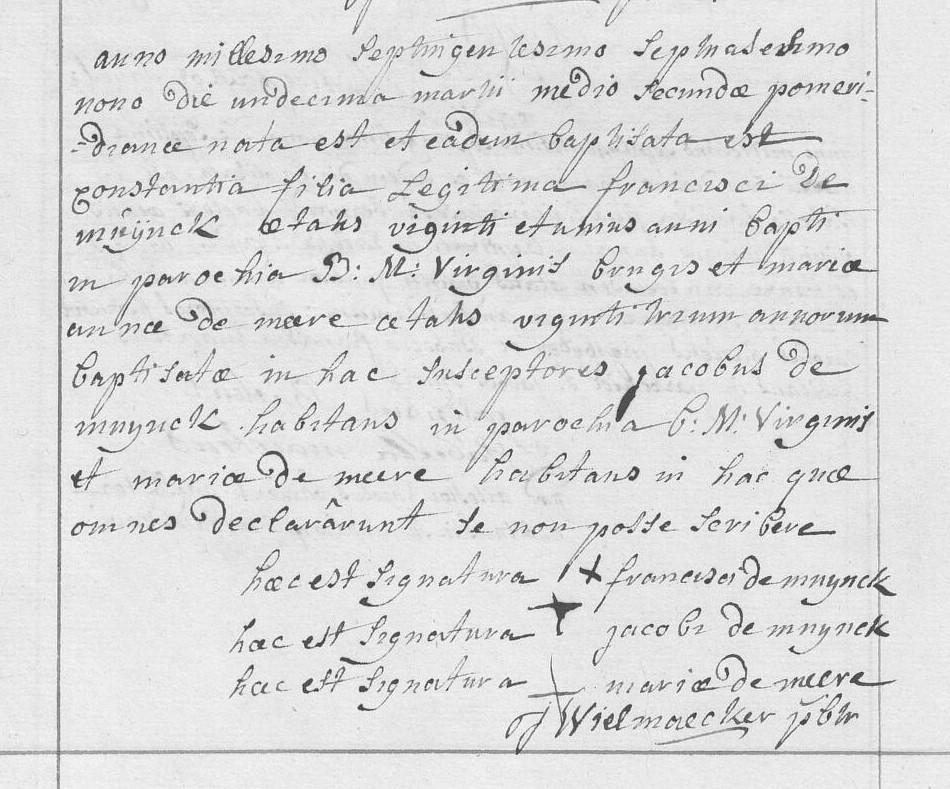 anno millesimo septingentesimo septuagesimo
nono die undecima martii medio secundæ pomeri-
-dianæ nata est et eadem baptisata est
constantia filia Legitima francisci De
muynck ætatis viginti et unius anni bapti
in parochia B: M: Virginis brugis et mariæ
annæ De meere ætatis viginti trium annorum
baptisatæ in hac susceptores jacobus de
muynck habitans in parochia b: M: Virginis
et mariæ De meere habitans in hac quæ
omnes declarârunt se non posse scribere
hæc est signatura + francisci de muynck
hæc est signatura + jacobi de muynck
hæc est signatura + mariæ De meere
Wielmaecker pbtr